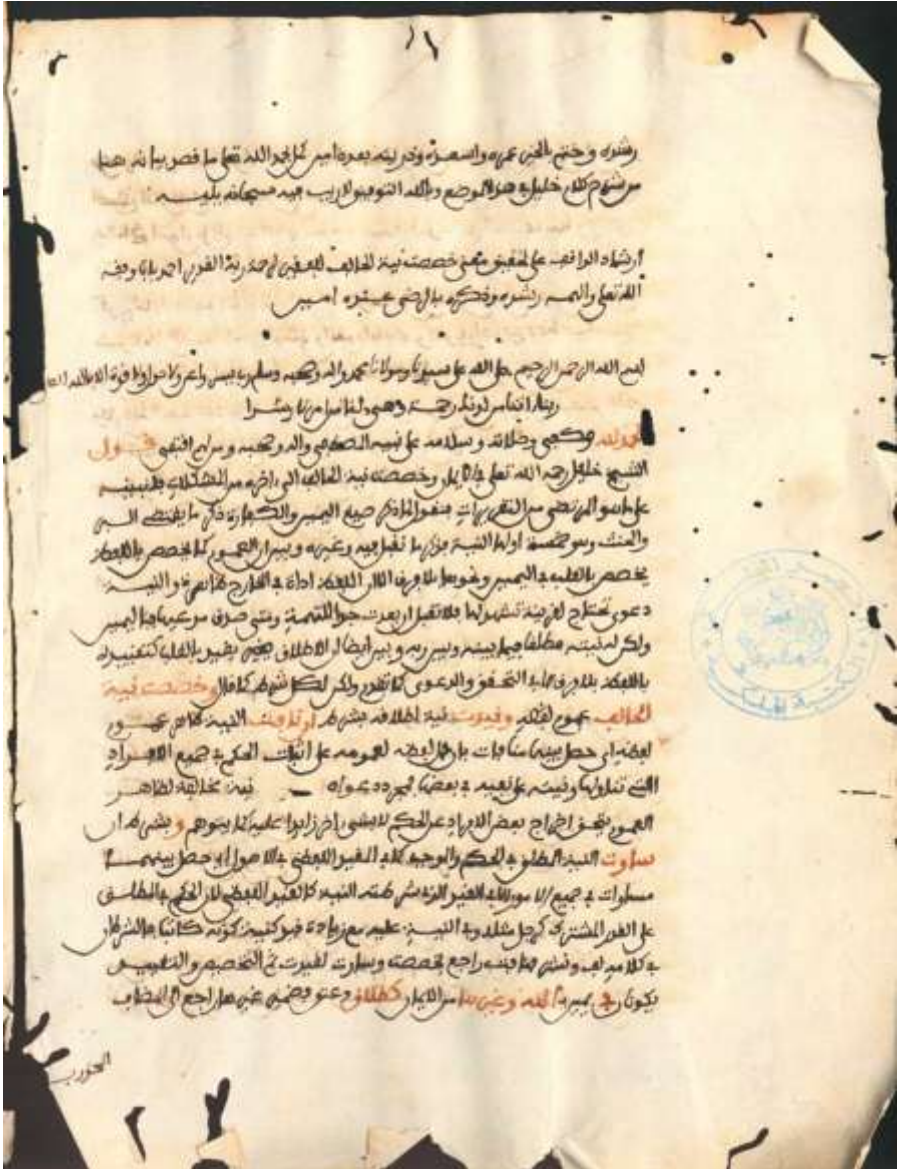 رشده وختم بالخير عمره واسعده وذريته بعده امين كمل بحمد الله تعلى ما قصد بيانه هنا
من كلام خليل في هذا الموضع وبالله التوفيق لا ريب فيه سبحانه يليه
ارشاد الواقف على تحقيق معنى خصصت نية الحالف للفقير لرحمة ربه القدير احمد بابا وفقه
الله تعلى والهمه رشده وذكره بالرضى عبيده امين
بسم الله الرحمن الرحيم صلى الله على سيدنا ومولانا محمد واله وصحبه وسلم رب يسر واعن ولا حول ولا قوة الا بالله
ربنا اتنا من لدنك رحمة وهيئ لنا من امرنا رشدا
وكفى وصلاته وسلامه على نبيه المصطفى واله وصحبه ومن لهم اقتفى قول
الشيخ خليل رحمه الله تعلى في الايمان وخصصت نية الحالف الى اخره من المشكلات
على ما هو المرتضى من التقريرات فنقول لما ذكر صيغ اليمين والكفارة ذكر ما يقتضي البر
والحنث وهو خمسة اولها النية مؤثرها تقبل فيه وغيره وبين ان العموم كما يخصص باللفظ
يخصص بالقلب في اليمين ونحوها بلا فرق الا ان اللفظ اداة في الخارج والنية
دعوى تحتاج لقرينة تشهد لها فلا تقبل ان بعدت خوف التهمة ومتى صرف مرعيها اليمين
ولكن له نيته مطلقا فيما بينه وبين ربه وبين ايضا ان الاطلاق يقيد بالقلب كتقييده
باللفظ بلا فرق في التحقق والدعوى كما تقدم ولكن لكل شرط كما قال وخصصت نية
الحالف عموم لفظه وقيدت نية اطلاقه بشرط ان نافت النية ظاهر عموم
لفظه اي حصل بينها منافات بان دل لفظه لعمومه على اثبات الحكم في جميع الافراد
التي تناولها ونيته على نفيه في بعضها لمجرد دعواه نية مخالفة لظاهر
العموم بقصد اخراج بعض الافراد عن الحكم لا بشيء اخر زايد عليه كما يتوهم وبشرط ان
ساوت النية المطلق في الحكم والوجه كلي المقيد اللفظي في الاصول اي حصل بينهما
مساوات في جميع الامور الا في القيد الذي شرطته النية كالمقيد اللفظي لان الحكم في المطلق
على القدر المشترك كرجل مثلا وفي النية عليه مع زيادة قيد كنية كونه كاتبا فالشرطان
في كلامه لف ونشر فنافت راجع لخصصت وساوت لقيدت ثم التخصيص والتقييد
يكونان في يمين بالله وغيرها من الايمان كطلاق وعتق فضمير غيرها راجع الى المضاف